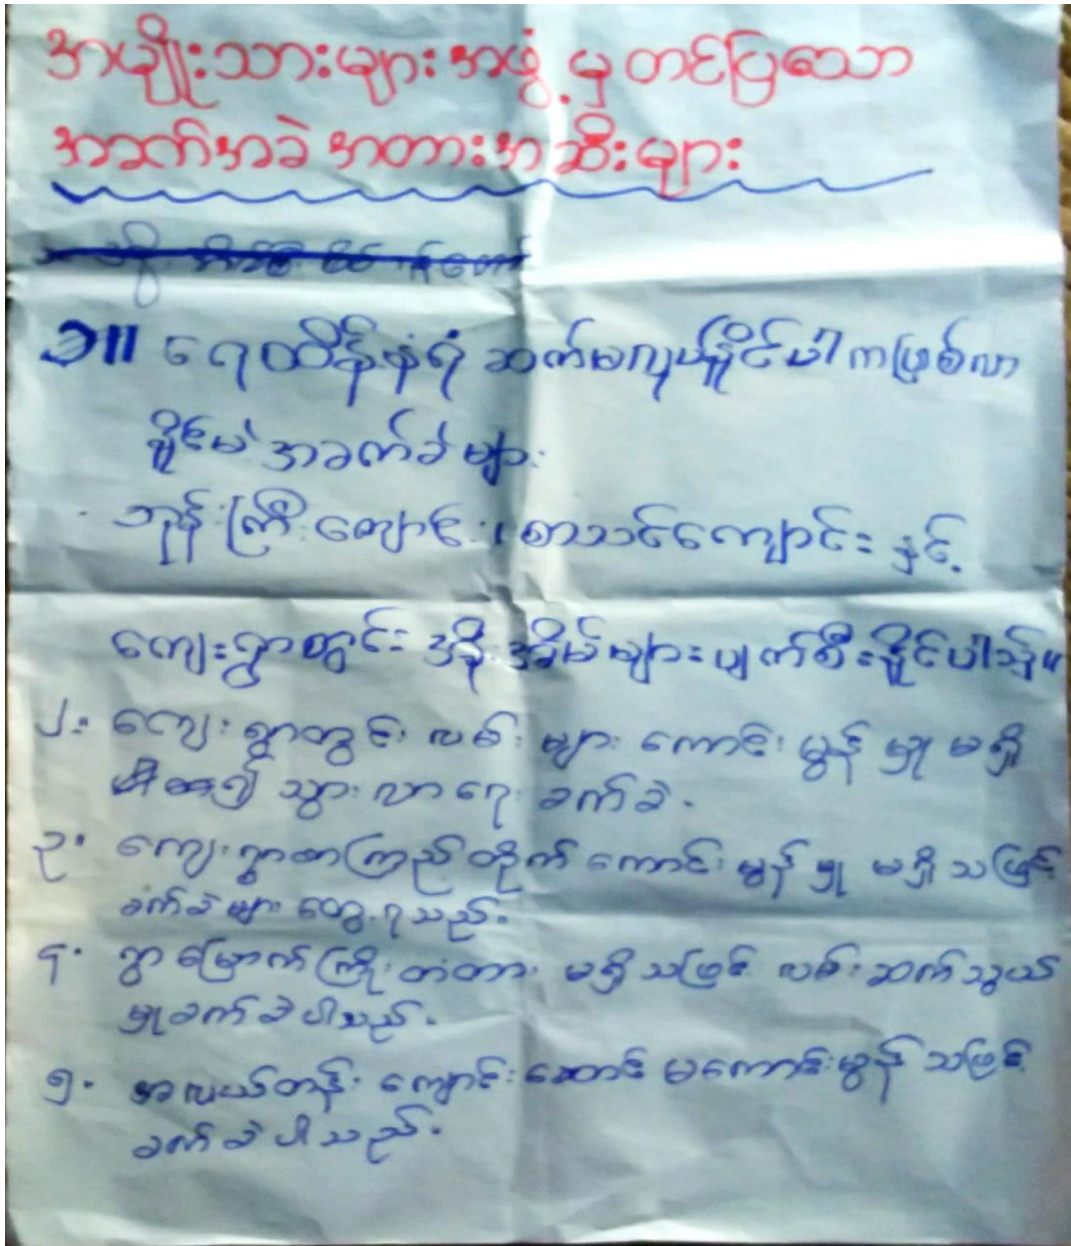 အမျိုးသားများအဖွဲ့မှတင်ပြသော
အခက်အခဲအတားအဆီးများ
၁။ ရေထိန်းနံရံ ဆက်မလုပ်နိုင်ပါကဖြစ်လာ
နိုင်မဲ့အခက်ခဲများ
ဘုန်းကြီးကျောင်း၊ စာသင်ကျောင်းနှင့်
ကျေးရွာတွင်း အိုးအိမ်များပျက်စီးနိုင်ပါသည်။
၂။ ကျေးရွာတွင်း လမ်းများ ကောင်းမွန်မှု မရှိ
သွားလာရေး ခက်ခဲ.
၃. ကျေးရွာစာကြည့်တိုက် ကောင်းမွန်မှု မရှိသဖြင့်
ခက်ခဲများ တွေ့ရသည်.
၄. ရွာမြောက်ကြိုးတံတား မရှိသဖြင့် လမ်းဆက်သွယ်
မှုခက်ခဲပါသည်.
၅. အလယ်တန်းကျောင်းဆောင် မကောင်းမွန်သဖြင့်
ခက်ခဲပါသည်.